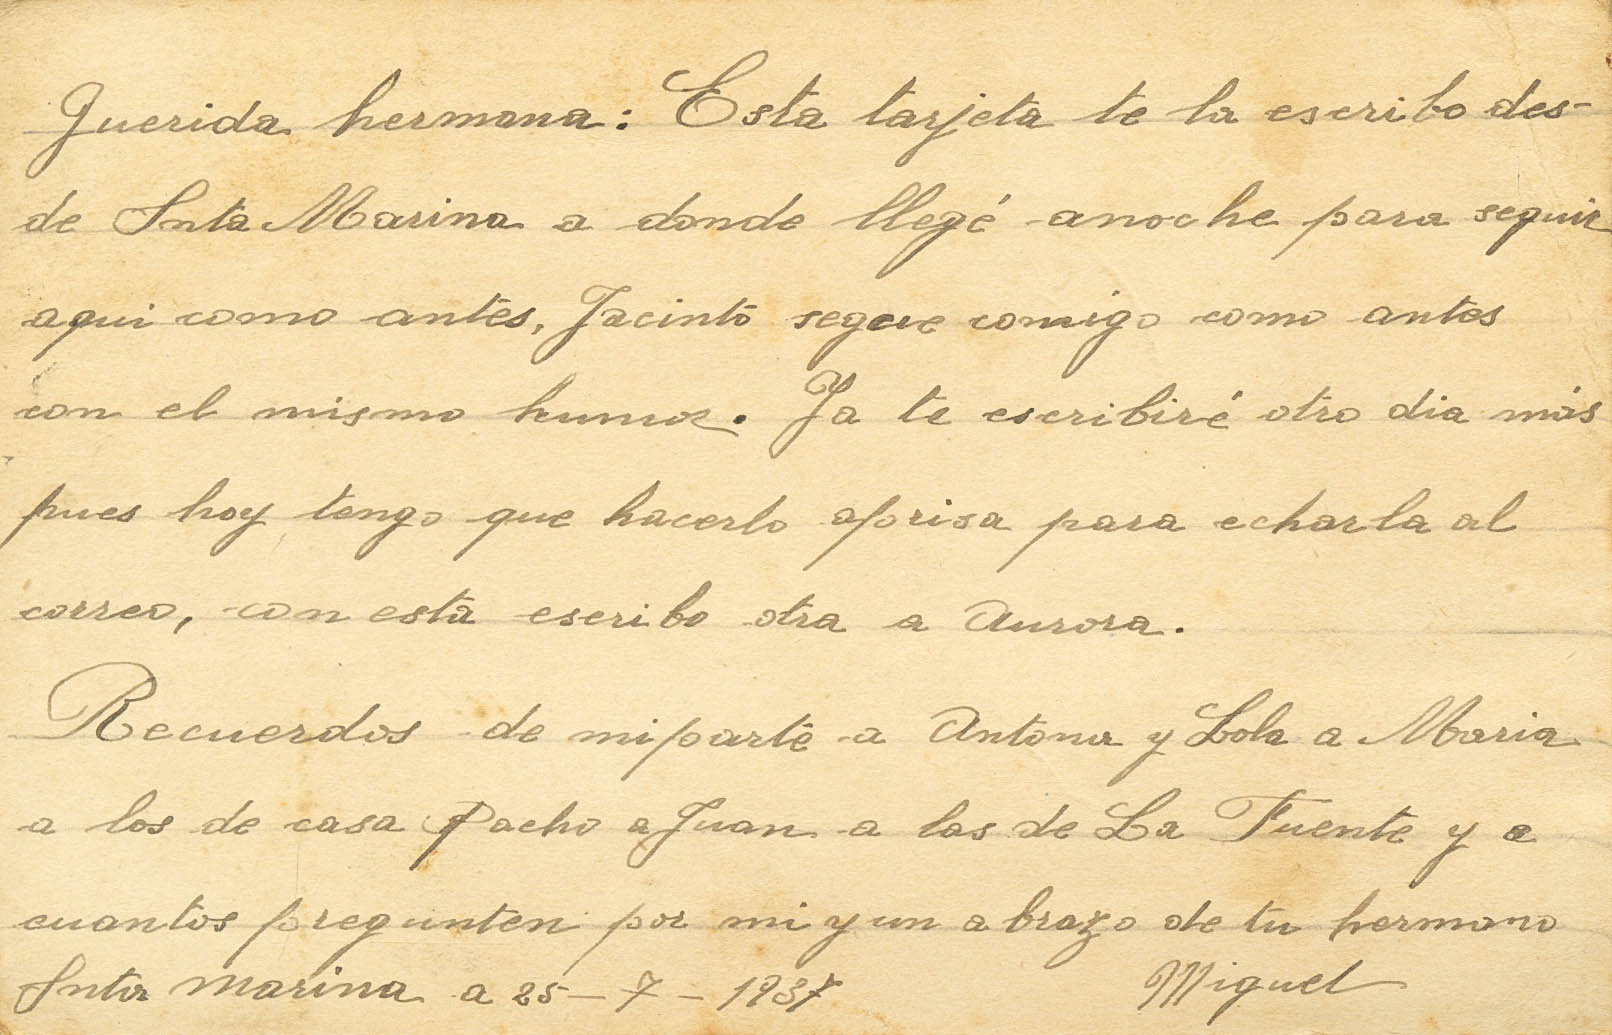 Querida hermana: Esta tarjeta te la escribo des-
de Snta Marina a donde llegé anoche para seguir
aqui como antes, Jacinto segue comigo como antes
con el mismo humor. Ya te escribiré otro dia más
pues hoy tengo que hacerlo aprisa para echarla al
correo, con esta escribo otra a Aurora.
Recuerdos de mi parte a Antona y Lola a Maria
a los de casa Pacho a Juan a las de La Fuente y a
cuantos pregunten por mi y un abrazo de tu hermano
Snta Marina a 25-7-1937 Miguel